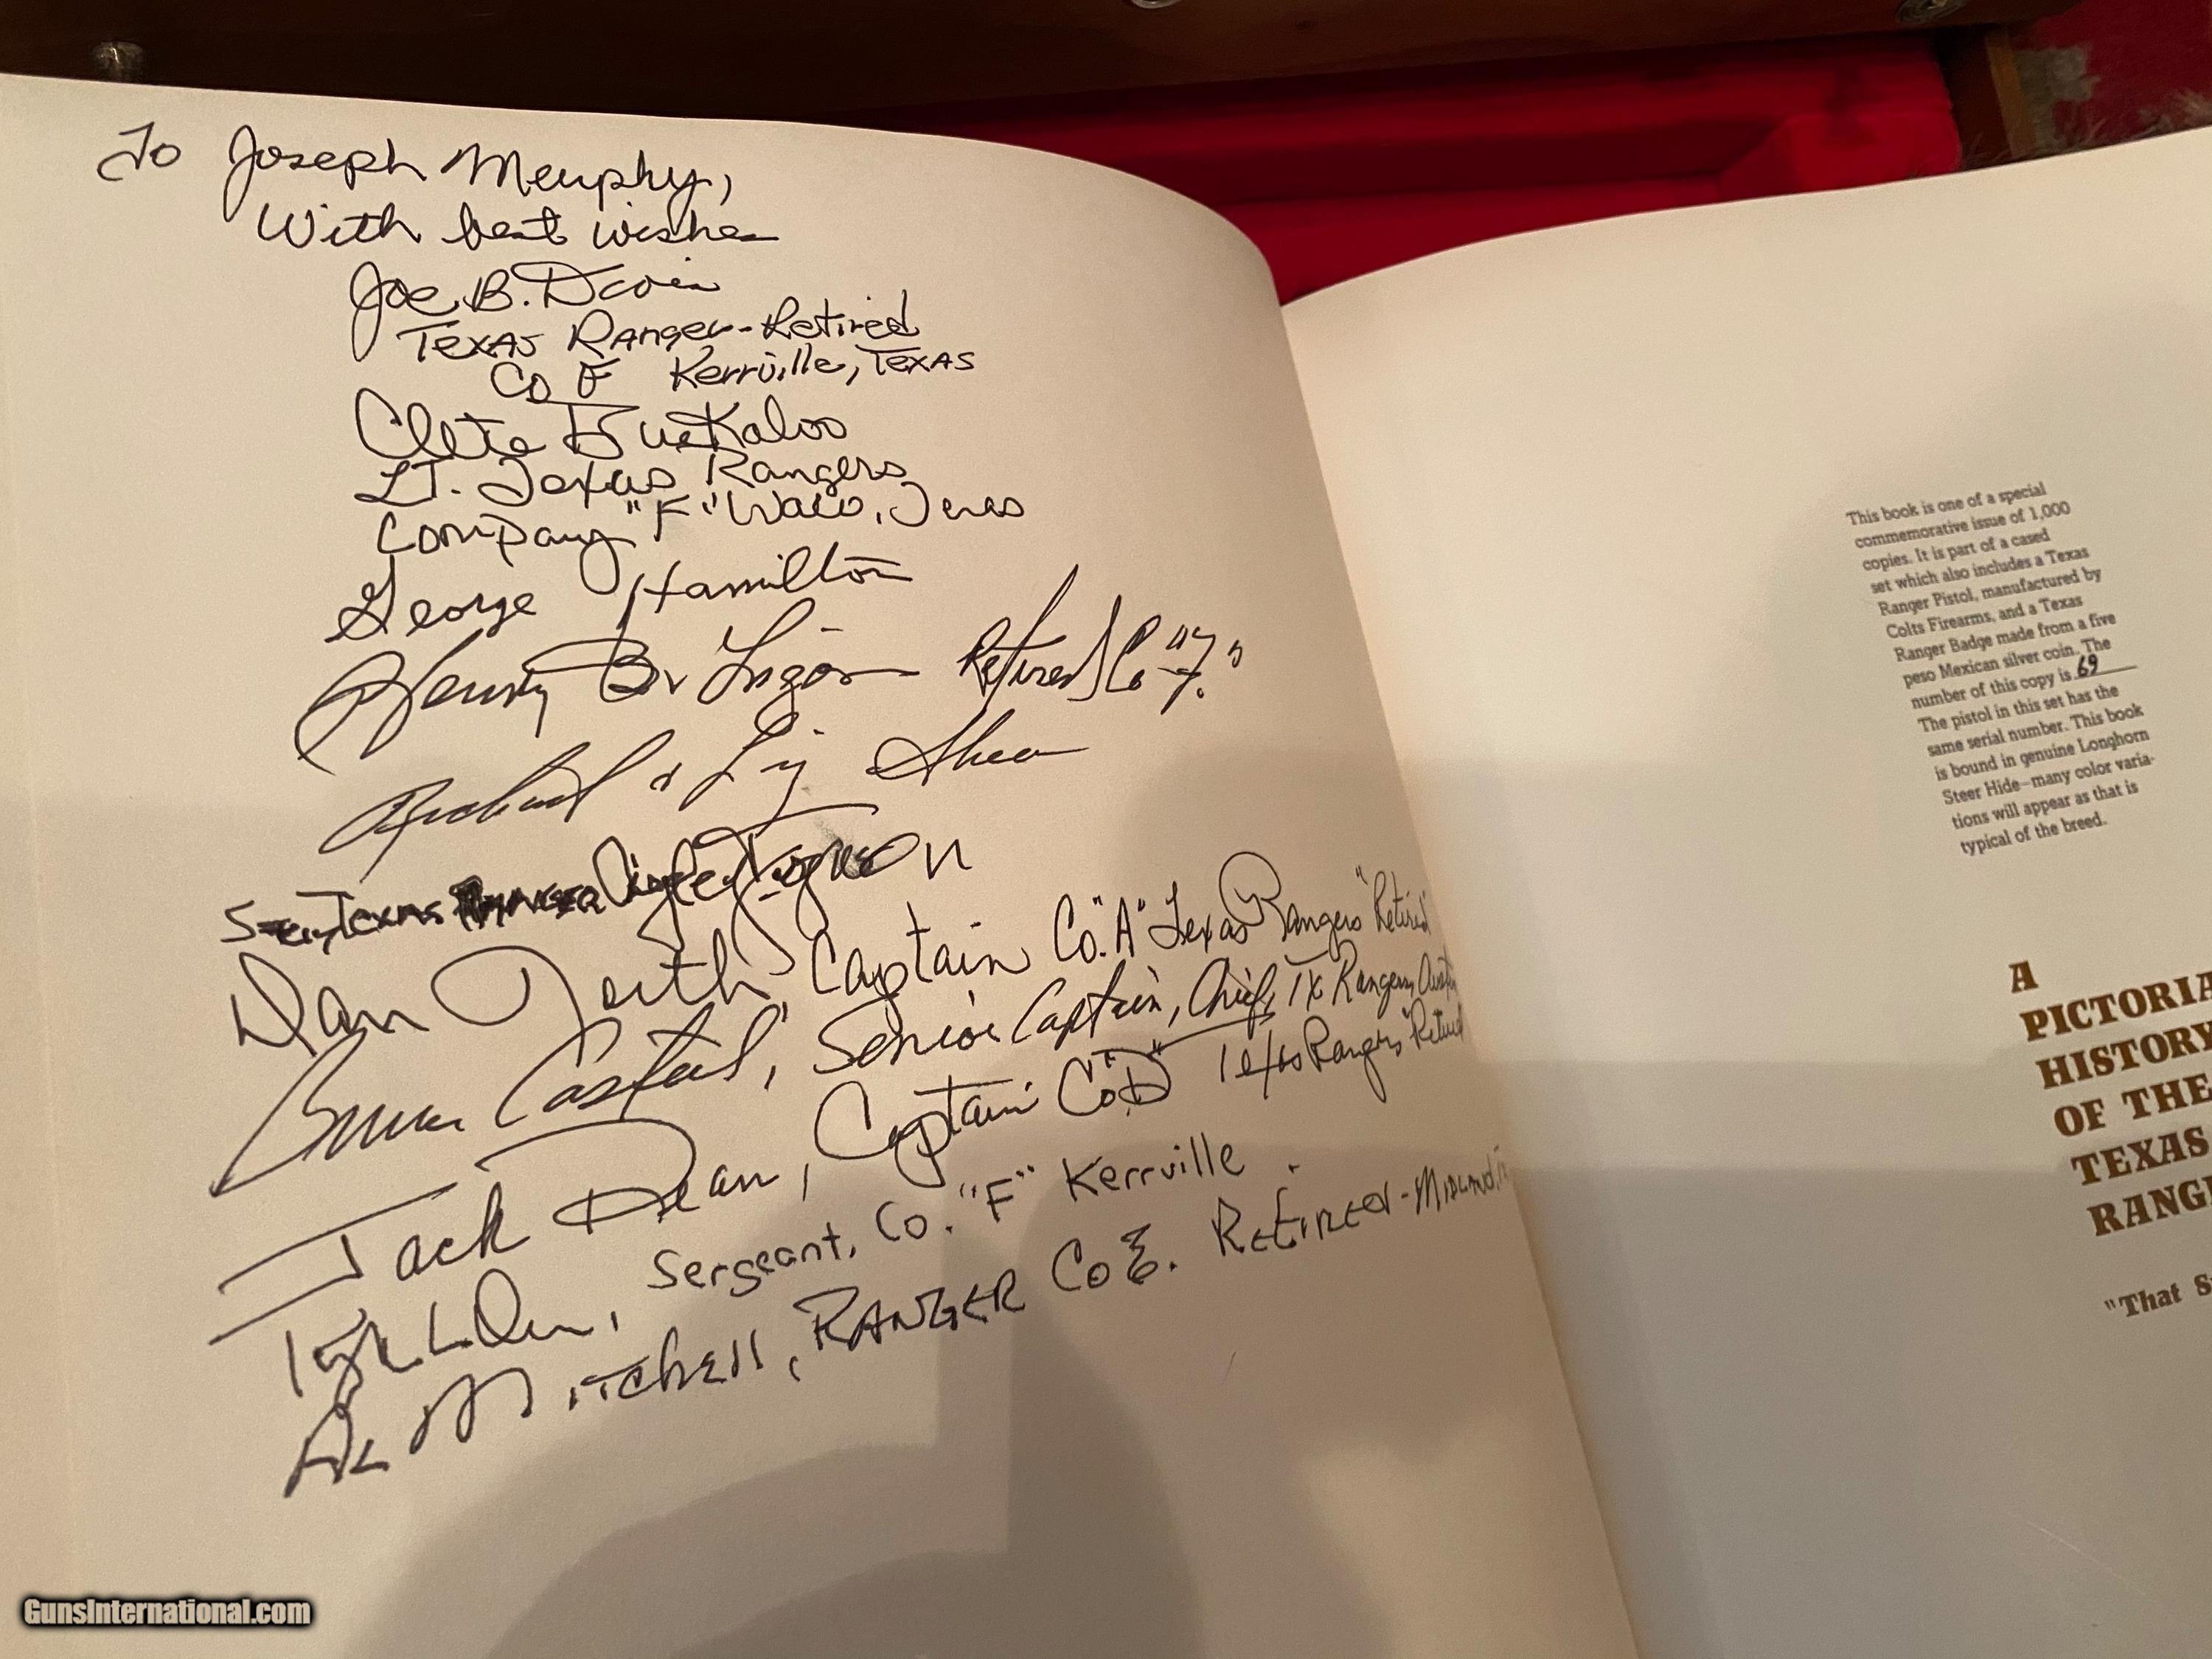 To Joseph Murphy,
With best wishes
Joe B. Davis
Texas Ranger-Retired
Co F Kerrville, Texas
Clete Buckaloo
Lt. Texas Rangers
Company "F" Waco, Texas
George Hamilton
Henry B. Ligon Retired Co "F"
Shea
Texas Ranger
Dan North Captain Co. "A" Texas Rangers "Retired"
Bruce Casteel, Senior Captain, Chief, TX Rangers, Austin
Jack Dean, Captain Co "D" Texas Rangers "Retired"
Sergeant, Co. "F" Kerrville
Al Mitchell, RANGER Co E. Retired-Midland
This book is one of a special
commemorative issue of 1,000
copies. It is part of a cased
set which also includes a Texas
Ranger Pistol, manufactured by
Colts Firearms, and a Texas
Ranger Badge made from a five
peso Mexican silver coin. The
number of this copy is 69
The pistol in this set has the
same serial number. This book
is bound in genuine Longhorn
Steer Hide–many color varia-
tions will appear as that is
typical of the breed.
A
PICTORIA
HISTORY
OF THE
TEXAS
RANG
"That S
GunsInternational.com